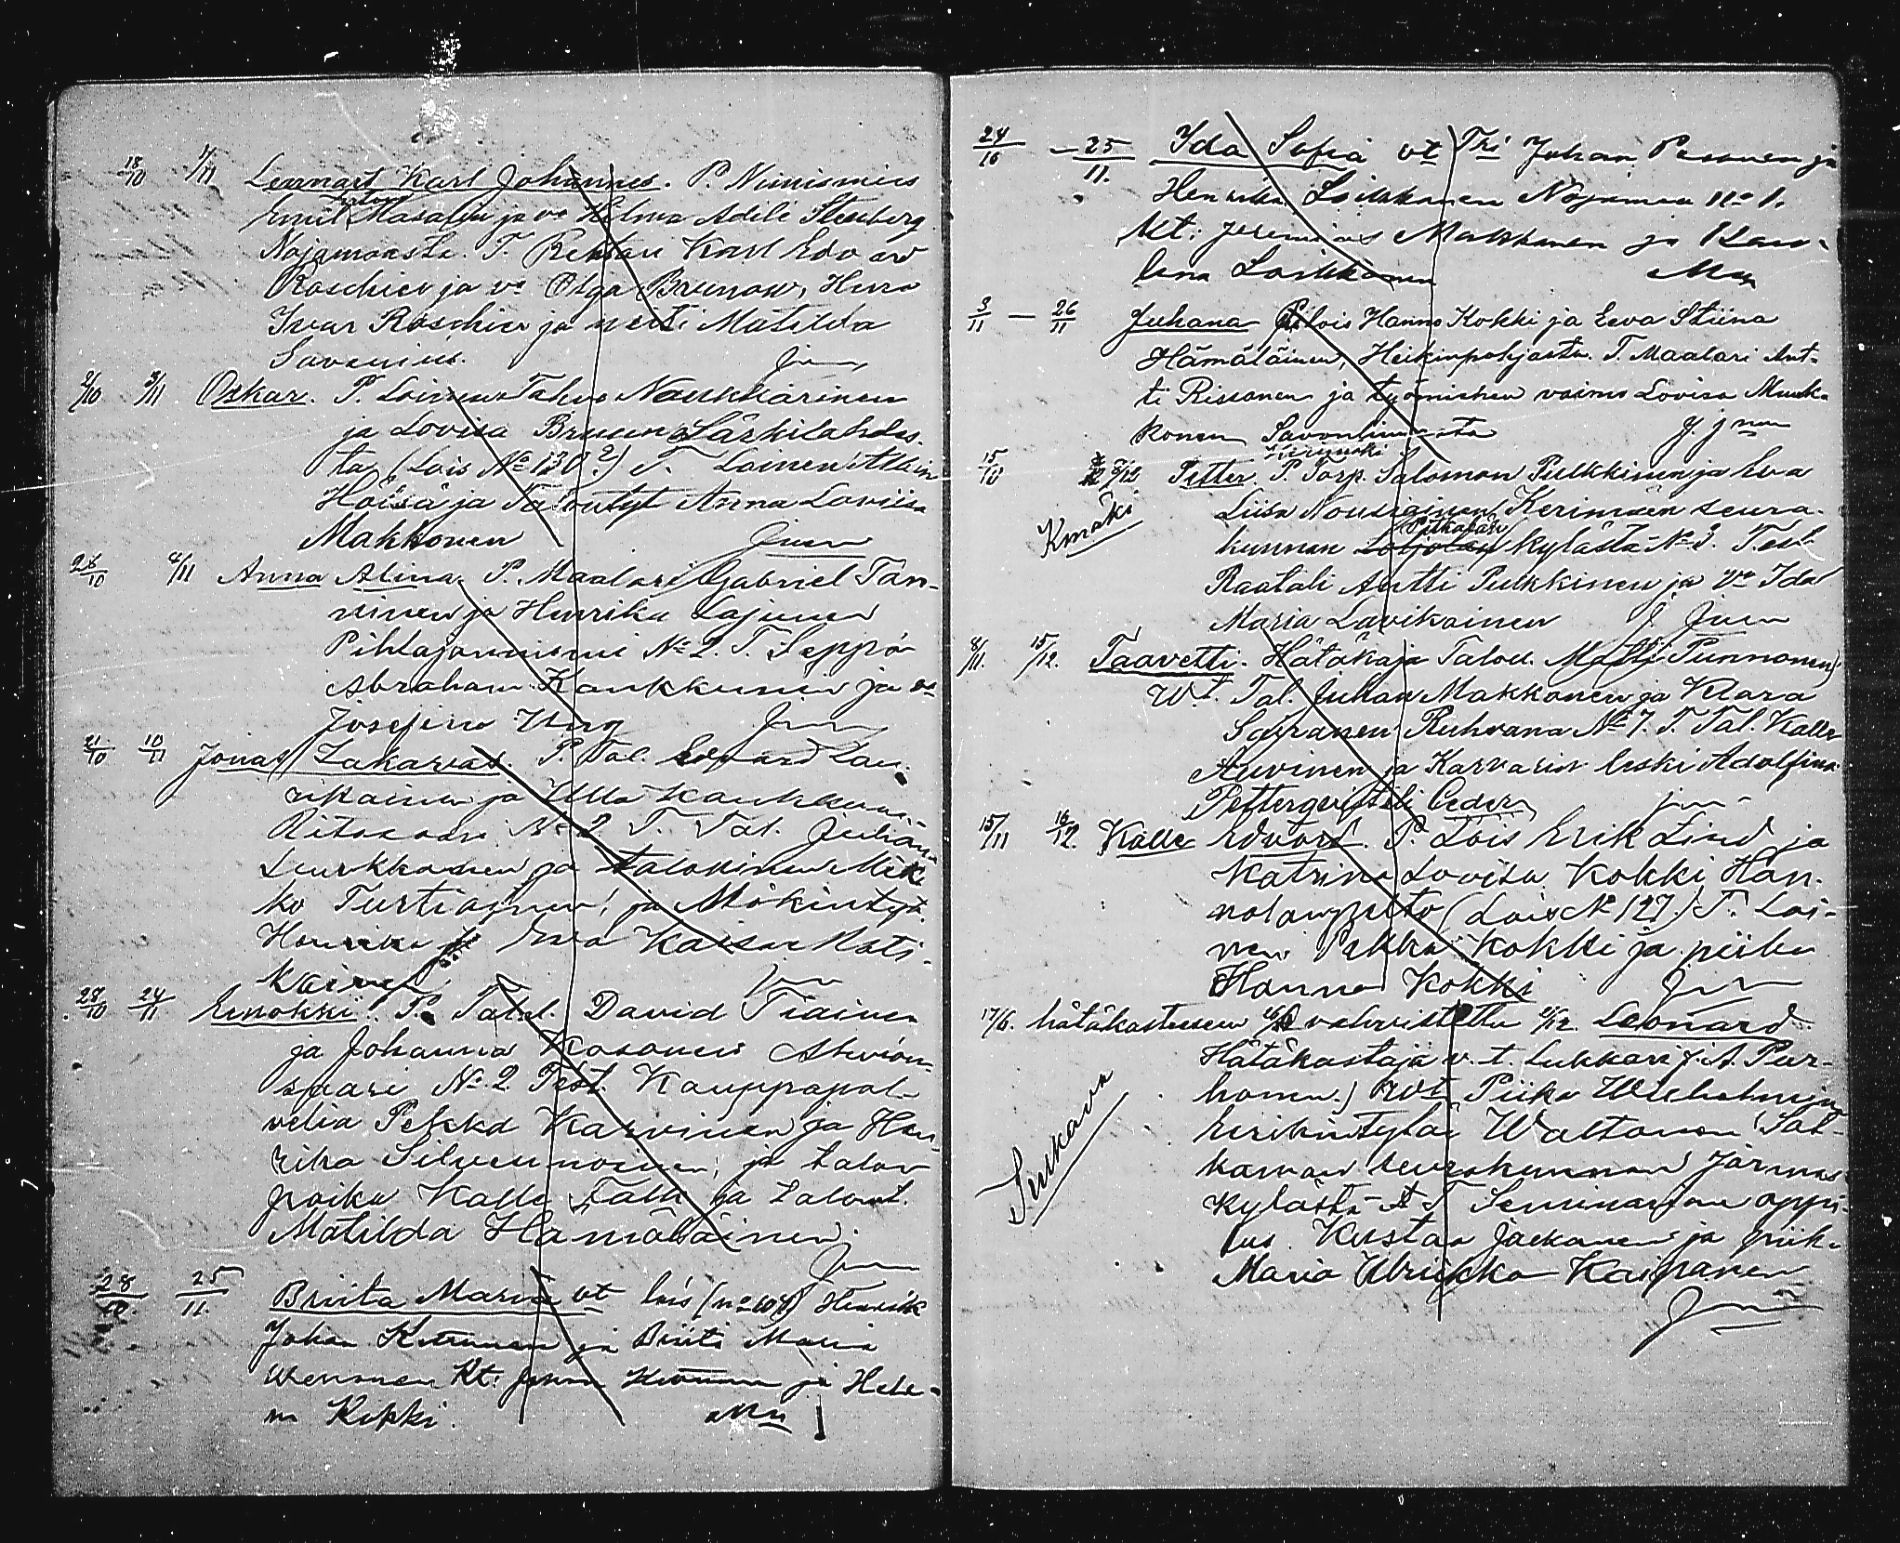 18/10 1/11 Lennart Karl Johannes. P. Nimismies
Emil Masalin ja vo Hilma Adele Stenberg
Nojamaasta. T. Rehtori Karl Edvard
Roschier ja vo Olga Brunow, Herra
Ivar Roschier ja neiti Matilda
Savenius.
2/10 3/11 Oskar. P. Loinen Tahvo Naukkarinen
ja Lovisa Bruun Särkilahdes-
ta (Lois No 130?) T. Loinen Albin
ja Talontyt Anna Loviisa
Makkonen
28/10 4/11 Anna Alina. P. Maalari Gabriel Tan-
ninen ja Henrika Lajunen
Pihlajaniemi No 2. T. Seppä
Abraham Kaukkunen ja vo
Josefina
21/10 10/11 Jonas Zakarias. P. Tal. Edvard Lau-
rikainen ja Ulla Kaukkunen
Ritosaari No 2 T. Tal. Juhana
ja talokinen Mik-
ko Turtiainen; ja Mökintyt.
Henrika ja Eeva Kaisa Rati-
kainen
28/10 24/11 Eenokki. P. Talol. David Tiainen
ja Johanna Kosonen Ahvion-
saari No 2 Test. Kauppapal-
velia Pekka Karvinen ja Hen-
rika Silvennoinen, ja talon
poika Kalle Falk ja talont.
Matilda Hämäläinen.
28/10 25/11. Briita Maria vt lois (no 104) Henrik
Johan ja Briita Maria
Kt. ja Hele-
na Kokki.
24/10 - 25/11. Ida Sofia vt Tri Juhan Pesonen ja
Henrika Loikkanen Nojamaa no 1.
Kt: Jeremias Makkonen ja Karo-
lina Loikkanen
3/11 - 26/11 Juhana P. lois Hannu Kokki ja Eeva Stiina
Hämäläinen, Heikinpohjasta. T. Maalari Ant-
ti Rissanen ja työmiehen vaimo Lovisa Munk-
konen Savonlinnasta
Kerimäki
15/10 5/12 Petter. P. Torp. Salomon Pulkkinen ja Eva
Liisa Nousiainen Kerimäen seura-
Kmäki
kunnan kylästä No 3. Test.
Raatali Antti Pulkkinen ja Vo Ida
Maria Lavikainen
8/11. 15/12. Taavetti. Hätäkaja Talou. Matti Punnonen)
Wt. Tal. Juhan Makkonen ja Klara
Sairanen Ruhvana No 7. T. Tal. Kalle
Auvinen ja Karvarin leski Adolfina
15/11 16/12. Kalle Edvard. P. Lois Erik Lind ja
Katrina Lovisa Kokki Han-
nolanpelto (Lois No 127.) T. Loi-
nen Pekka Kokki ja piika
Hanna Kokki
17/6. hätäkasteesen vahvistettu 2/12 Leonard.
Hätäkastaja v. t. Lukkari J. A. Pur-
honen.) Wt Piika Wilhelmina
Eerikintytär Waltonen Sul-
kavan seurakunnan
Sulkava
kylästä T. Seminarian oppi-
las Kustaa Jäskanen ja piik.
Maria Ulriikka Kaipanen